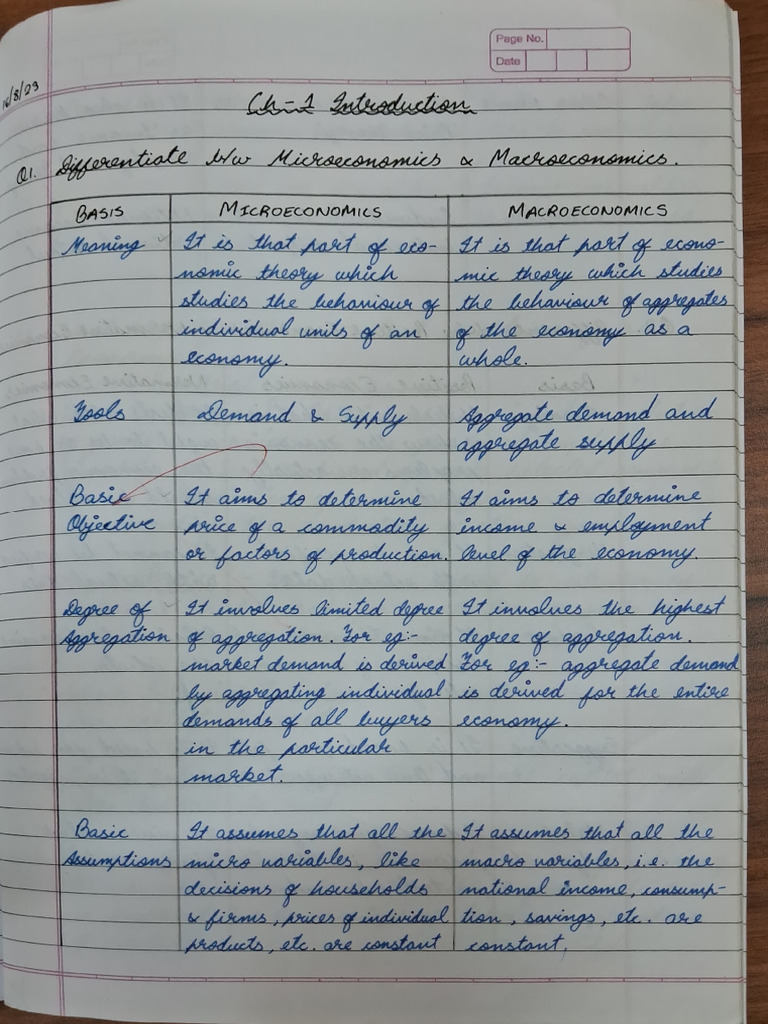 Page No.
Date
16/8/23
Ch-1 Introduction
Q1. Differentiate b/w Microeconomics & Macroeconomics.
BASIS MICROECONOMICS MACROECONOMICS
Meaning
It is that part of eco-
nomic theory which
studies the behaviour of
individual units of an
economy.
It is that part of econo-
mic theory which studies
the behaviour of aggregates
of the economy as a
whole.
Tools
Demand & Supply
Aggregate demand and
aggregate supply
Basic
Objective
It aims to determine
price of a commodity
or factors of production.
It aims to determine
income & employment
level of the economy.
Degree of
Aggregation
It involves limited degree
of aggregation. For eg:-
market demand is derived
by aggregating individual
demands of all buyers
in the particular
market.
It involves the highest
degree of aggregation.
For eg:- aggregate demand
is derived for the entire
economy.
Basic
Assumptions
It assumes that all the
micro variables, like
decisions of households
& firms, prices of individual
products, etc. are constant
It assumes that all the
macro variables, i.e. the
national income, consump-
tion, savings, etc. are
constant.